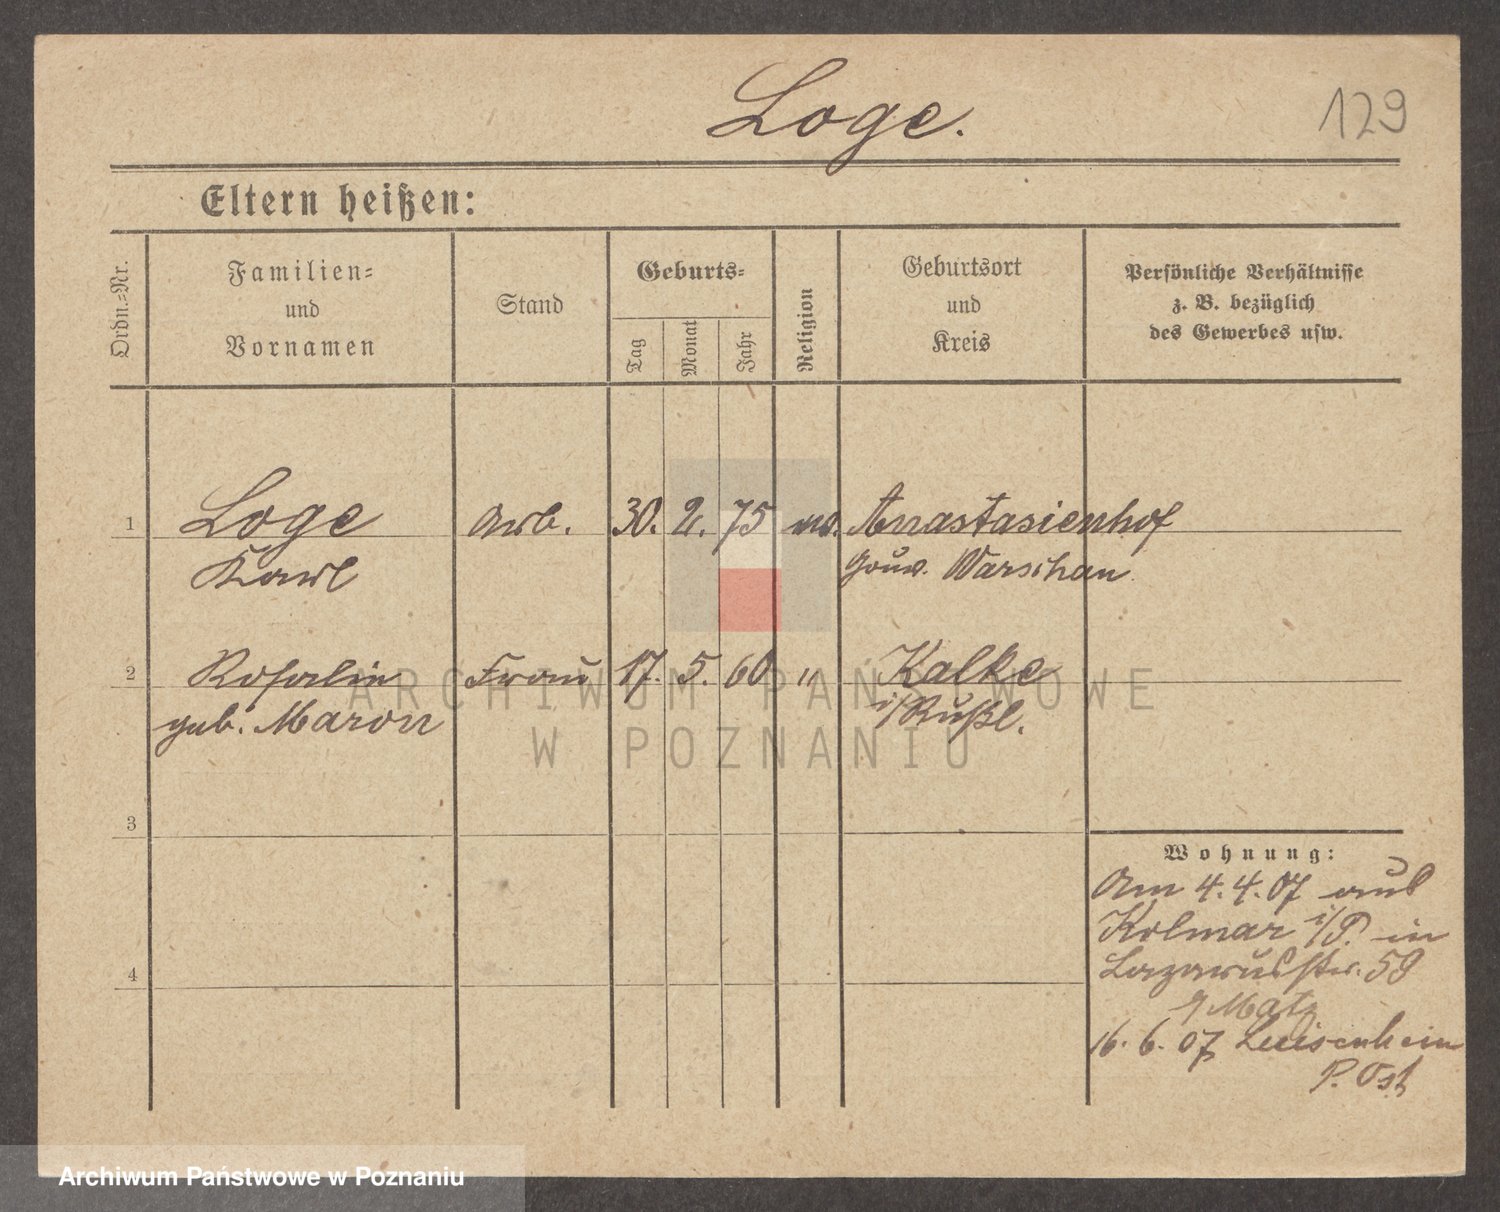 Loge.
129
Eltern heißen:
Ordn.-Nr.
Familien-
und
Vornamen
Stand
Geburts-
Tag
Monat
Jahr
Religion
Geburtsort
und
Kreis
Persönliche Verhältnisse
z. B. bezüglich
des Gewerbes usw.
1
Loge
Karl
Arb.
30. 2. 75
ev.
Anastasienhof
Gouv. Warschau
2
Rosalie
geb. Maron
Frau
17. 5. 60
"
Kalke
i/Rußl.
3
4
Wohnung:
Am 4.4.07 aus
Kolmar i/P. in
Lazarusstr. 59
16. 6. 07 Luisenhein
P. Ost
ARCHIWUM PAŃSTWOWE
W POZNANIU
Archiwum Państwowe w Poznaniu